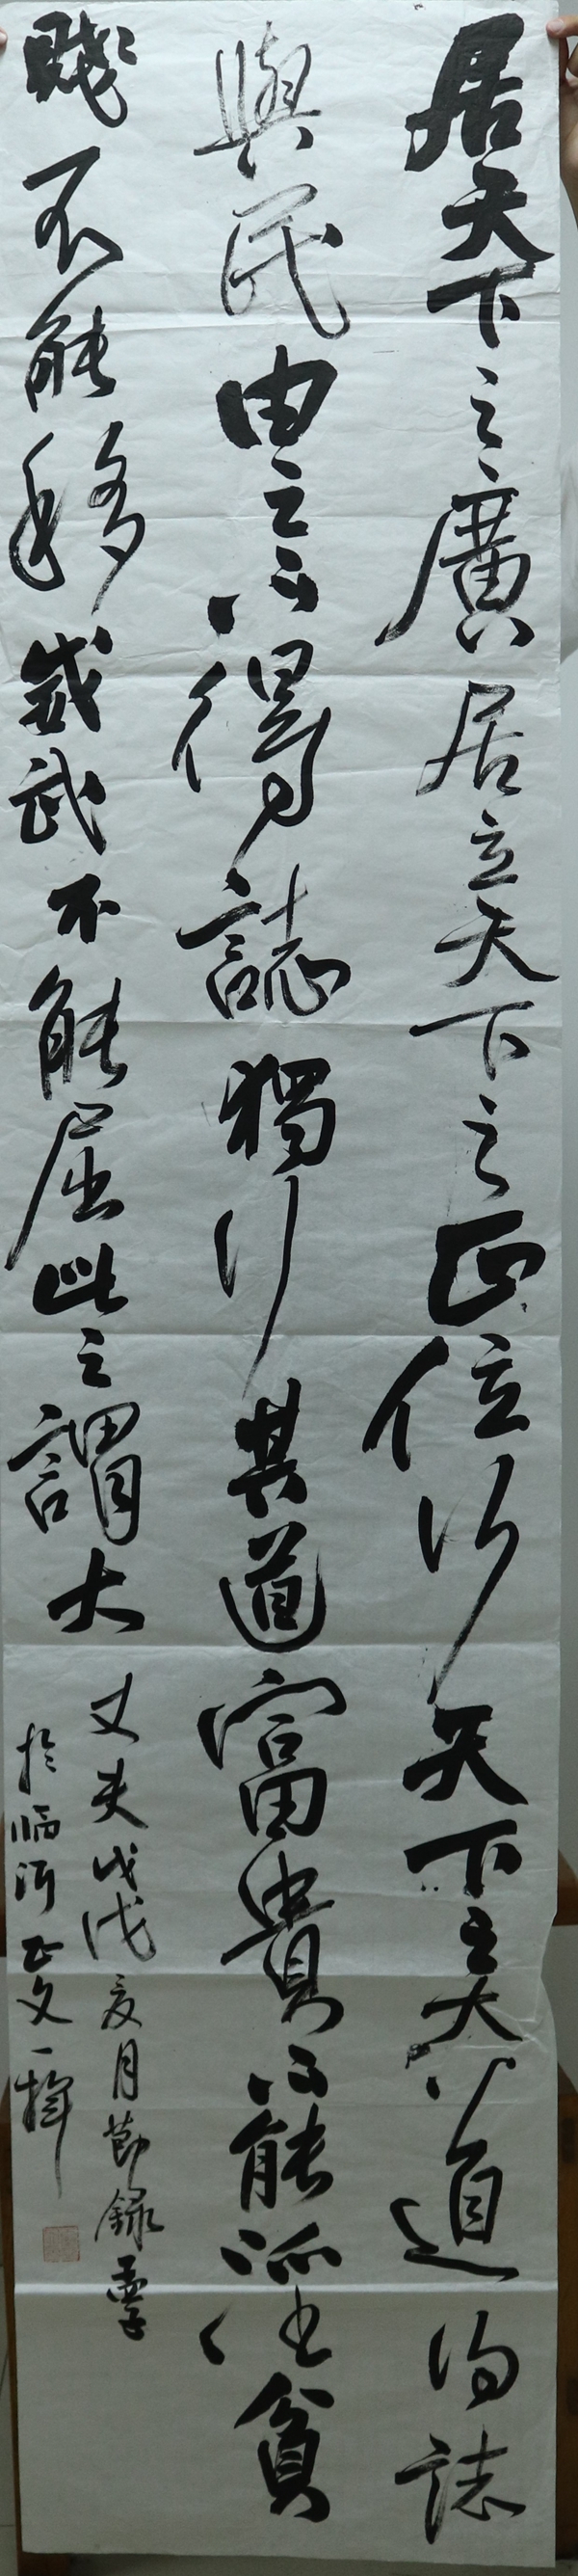 居天下之廣居立天下之正位行天下之大道得誌
與民由之不得誌獨行其道富貴不能淫貧
賤不能移威武不能屈此之謂大
丈夫戊戌夏月節錄孟子
於臨沂文輝